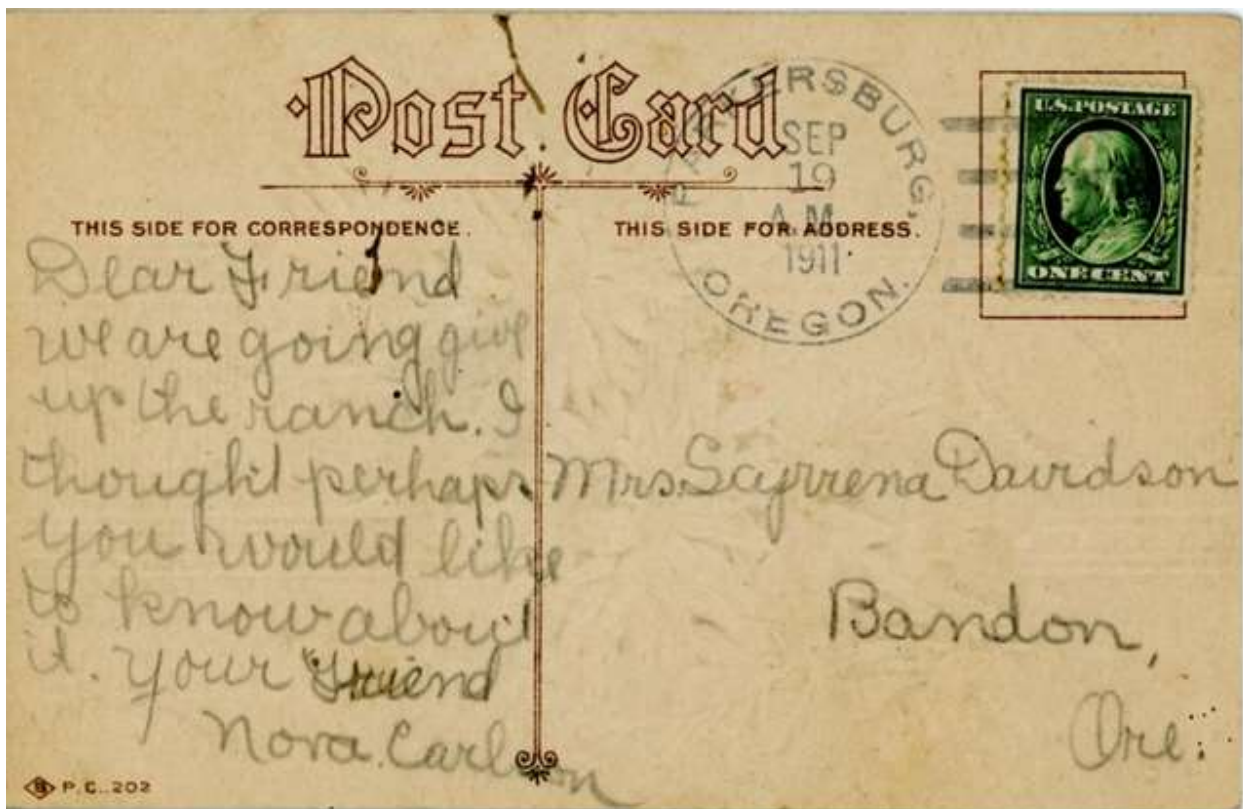 Post Card
PARKERSBURG,
SEP
19
A.M.
1911
OREGON.
U.S. POSTAGE
ONE CENT
THIS SIDE FOR CORRESPONDENCE.
THIS SIDE FOR ADDRESS.
Dear Friend
we are going give
up the ranch. I
thought perhaps
you would like
to know about
it. Your Friend
Nora. Carlson
Mrs. Sayrrena Davidson
Bandon,
Ore.
P.C. 202